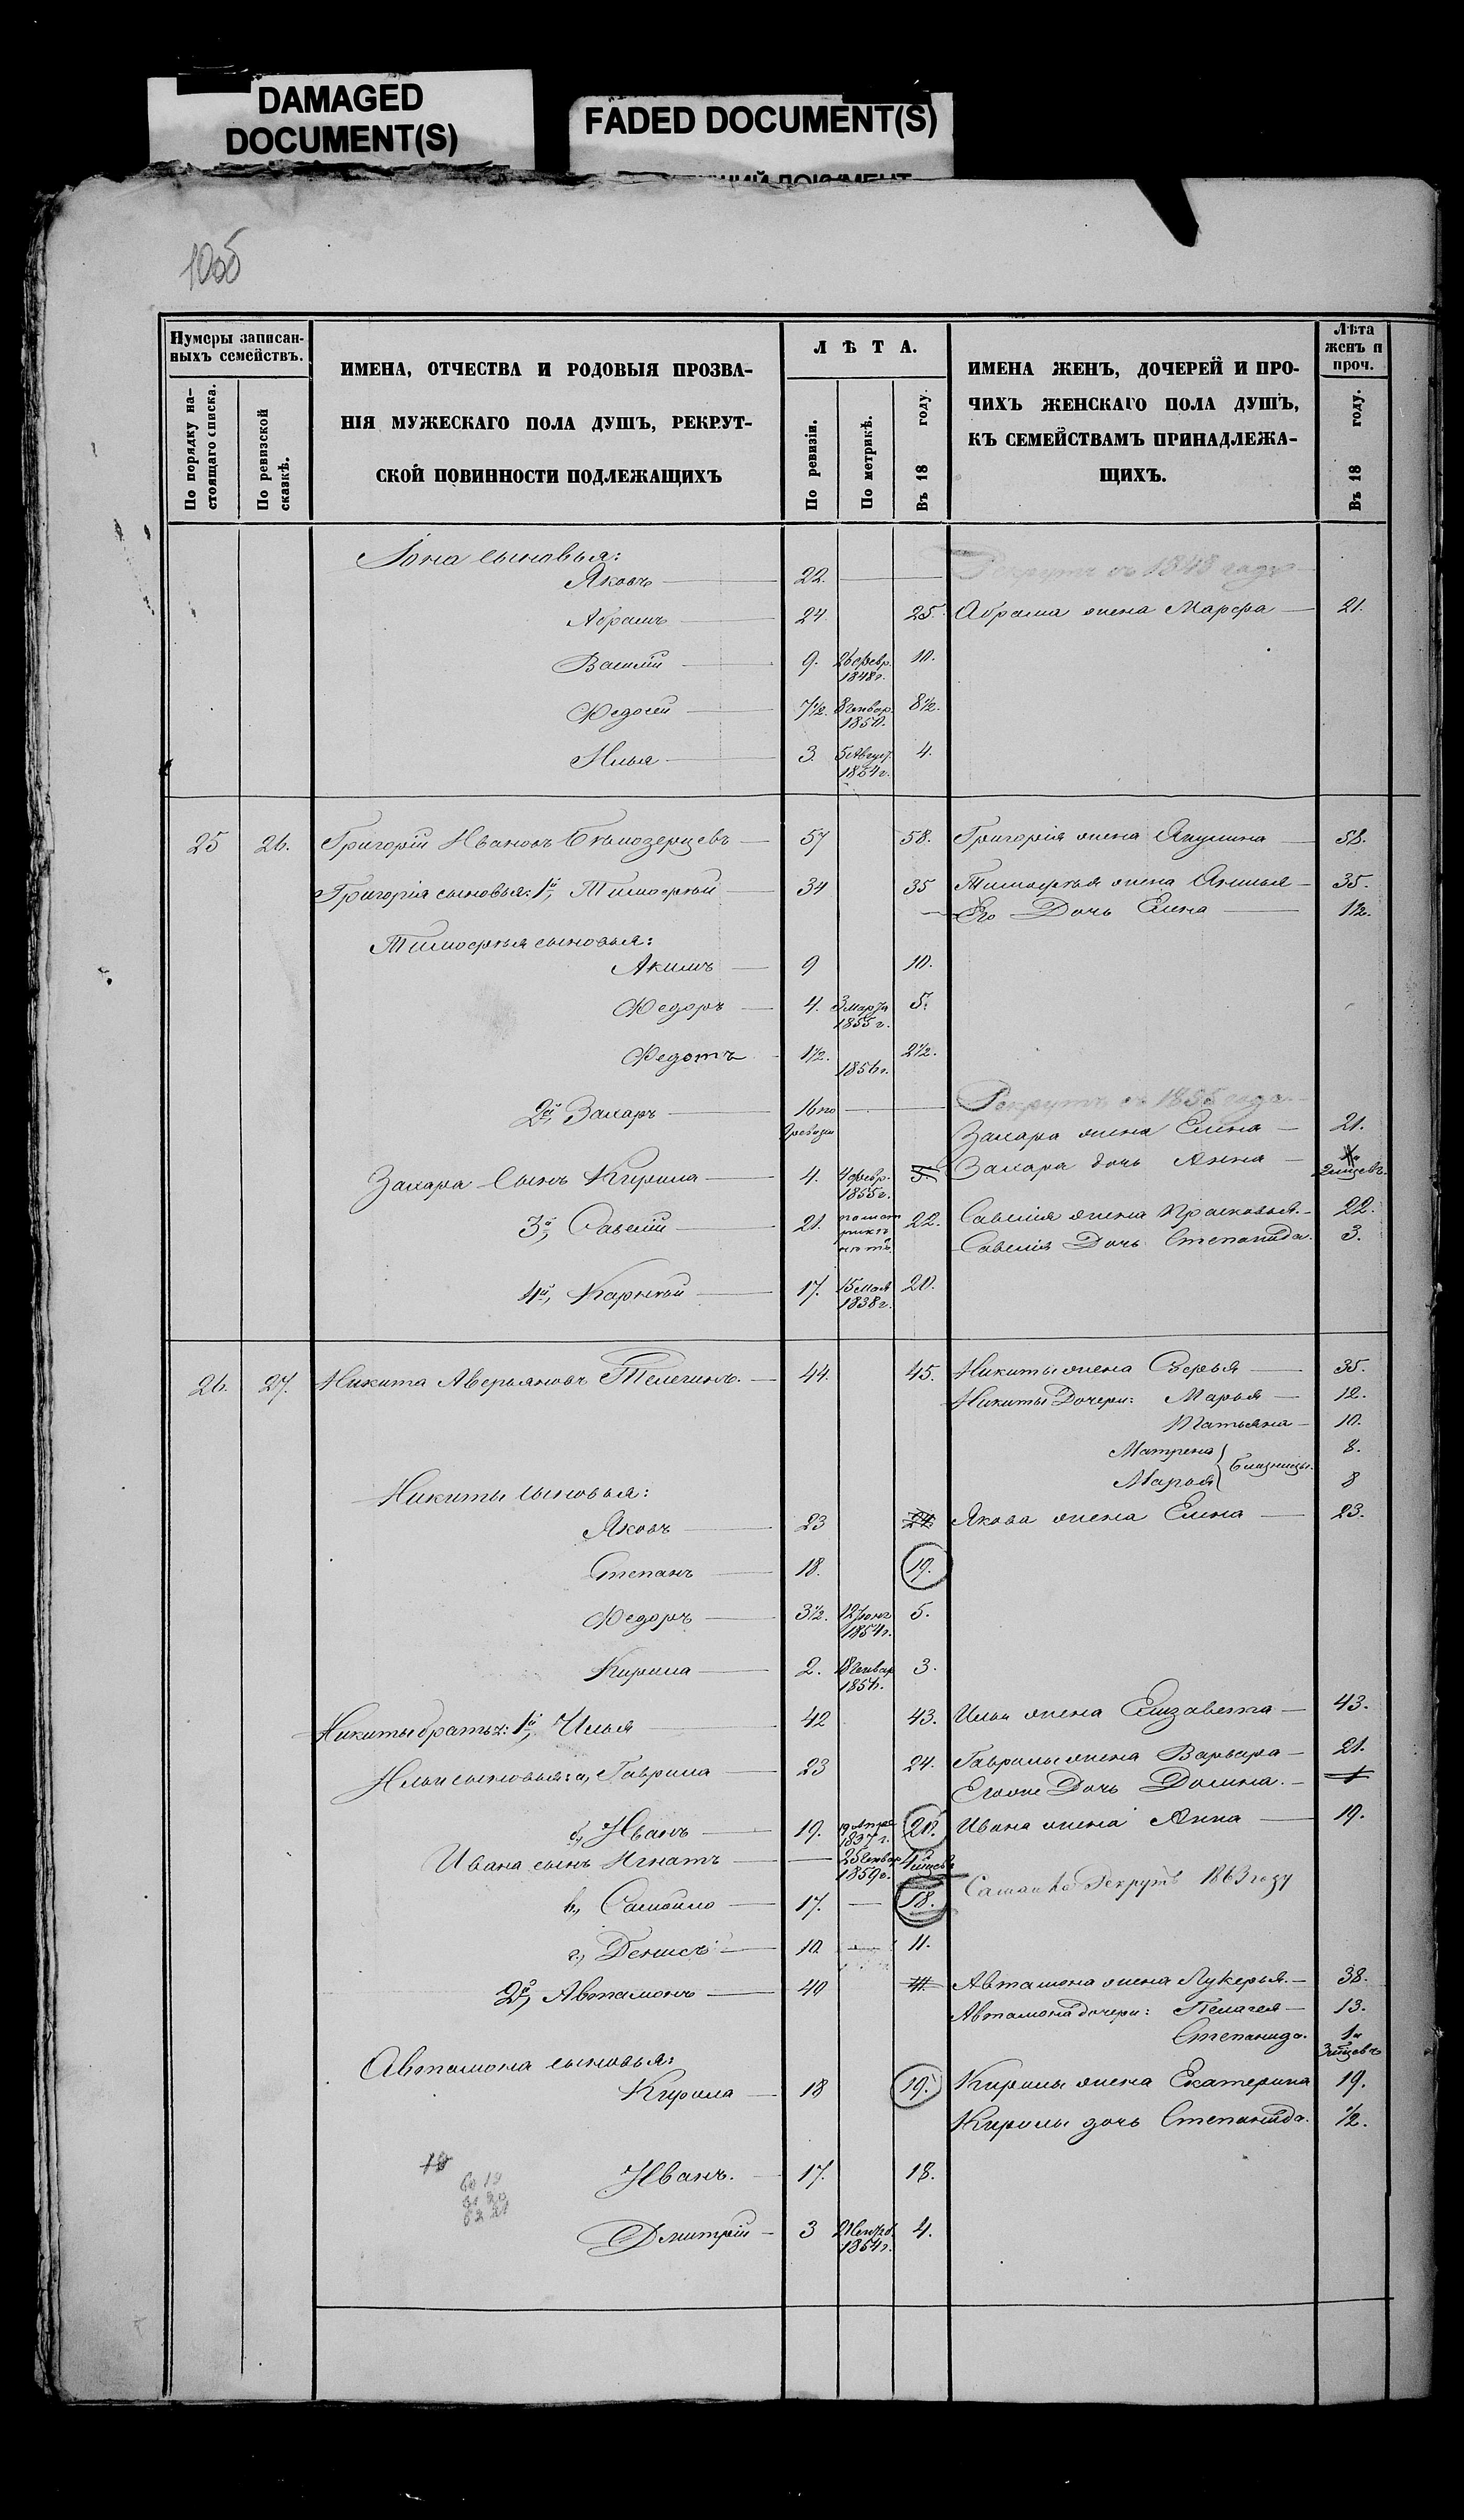 DAMAGED
DOCUMENT(S)
FADED DOCUMENT(S)
Нумеры записан-
ныхъ семействъ.
По порядку на-
стоящаго списка.
По ревизской
сказкѣ.
ИМЕНА, ОТЧЕСТВА И РОДОВЫЯ ПРОЗВА-
НІЯ МУЖЕСКАГО ПОЛА ДУШЪ, РЕКРУТ-
СКОЙ ПОВИННОСТИ ПОДЛЕЖАЩИХЪ
ЛѢТА.
По ревизіи.
По метрикѣ.
Въ 18 году.
ИМЕНА ЖЕНЪ, ДОЧЕРЕЙ И ПРО-
ЧИХЪ ЖЕНСКАГО ПОЛА ДУШЪ,
КЪ СЕМЕЙСТВАМЪ ПРИНАДЛЕЖА-
ЩИХЪ.
Лѣта
женъ и
проч.
Въ 18 году.
Іона сыновья:
Яковъ 22. Рекрутъ съ 1848 года
Абрамъ 24. 25. Абрама жена Марфа 21.
Василій 9. 26 февр. 1848 г. 10.
Федосей 7½. 8 Генвар. 1850. 8½.
Илья 3. 5 Август. 1854 г. 4.
25 26. Григорій Ивановъ Бѣлозерцевъ 57 58. Григорія жена Акулина 58.
Григорія сыновья: 1й, Тимофѣй 34 35 Тимофѣя жена Аксинья 35.
Его Дочь Елена 1½.
Тимофѣя сыновья:
Акимъ 9 10.
Федоръ 4. 3 Марта 1855 г. 5.
Федотъ 1½. 1856 г. 2½.
2й, Захаръ 16 по ревизіи Рекрутъ съ 1855 года
Захара жена Елена 21.
Захара Сынъ Кирила 4. 4 февр. 1855 г. 5. Захара дочь Анна
3й, Савелій 21. 22. Савелія жена Прасковья 22.
Савелія Дочь Степанида. 3.
4й, Карнѣй 17. 15 Мая 1838 г. 20.
26. 27. Никита Аверьяновъ Телегинъ. 44. 45. Никиты жена 35.
Никиты Дочери: Марья 12.
Татьяна 10.
Матрена 8.
Марья Близницы. 8
Никиты сыновья:
Яковъ 23 24. Якова жена Елена 23.
Степанъ 18. 19.
Федоръ 3½. 12 Іюня 1854 г. 5.
Кирила 2. 18 Генвар 1856. 3.
Никиты братья: 1й, Илья 42 43. Ильи жена Елизавета 43.
Ильи сыновья: а, Гаврила 23 24. Гаврилы жена Варвара 21.
Егоже Дочь Домна. 1
б, Иванъ 19. 1837 г. 20. Ивана жена Анна 19.
Ивана сынъ Игнатъ 25 Генвар 1859 г.
в, Самойло 17. 18. Рекрутъ 1863 году
г, Денисъ 10 11.
2й, Автамонъ 40 41. Автамона жена Лукерья. 38.
Автамона дочери: Пелагея 13.
Степанида.
Автамона сыновья:
Кирила 18 19. Кирилы жена Екатерина 19.
Кирилы дочь Степанида. ½.
Иванъ. 17. 18.
Дмитрій 3 1854 г. 4.